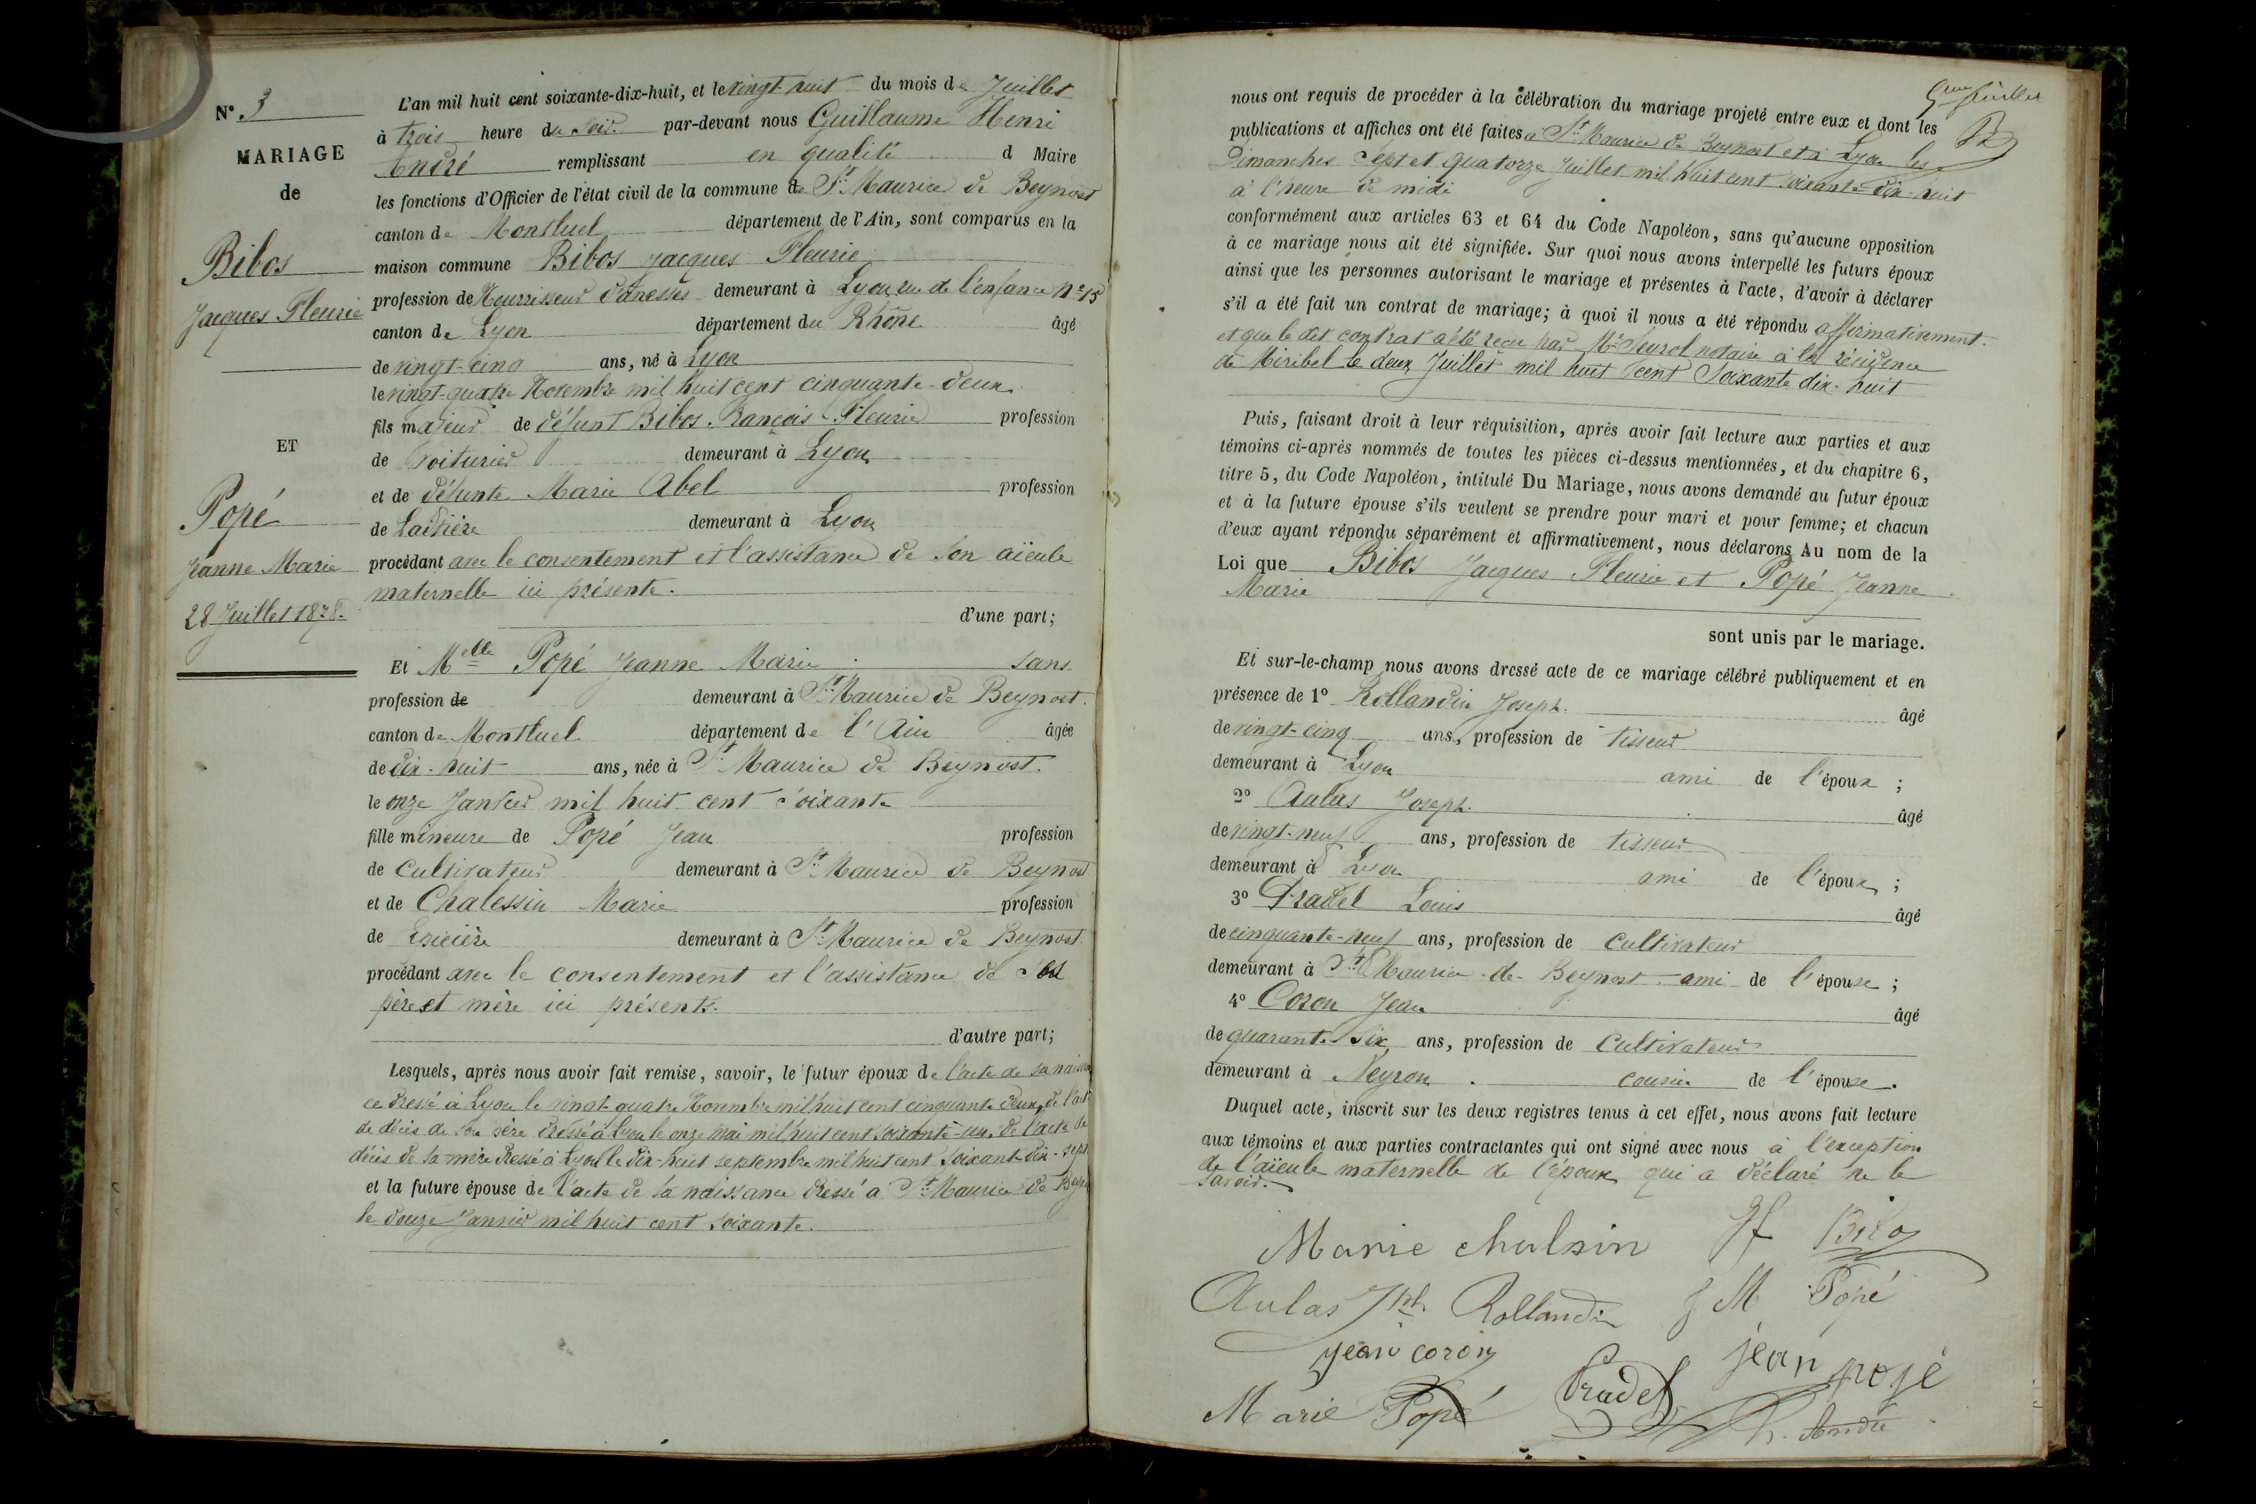 N° 3
MARIAGE
de
Bibos
Jacques Fleurie
ET
Popé
Jeanne Marie
28 Juillet 1878.
L'an mil huit cent soixante-dix-huit, et le vingt-huit du mois de Juillet
à trois heure du soir par-devant nous Guillaume Henri
André remplissant en qualité d Maire
les fonctions d'Officier de l'état civil de la commune de St Maurice de Beynost
canton de Montluel département de l'Ain, sont comparus en la
maison commune Bibos Jacques Fleurie
profession de Nourrisseur d'anesses demeurant à Lyon, rue de l'enfance N° 15
canton de Lyon département du Rhône âgé
de vingt-cinq ans, né à Lyon
le vingt-quatre Novembre mil huit cent cinquante-deux
fils majeur de défunt Bibos François Fleurie profession
de Voiturier demeurant à Lyon
et de défunte Marie Abel profession
de laitière demeurant à Lyon
procédant avec le consentement et l'assistance de son aïeule
maternelle ici présente.
d'une part;
Et Melle Popé Jeanne Marie sans
profession de demeurant à St Maurice de Beynost.
canton de Montluel département de l'Ain âgée
de dix-huit ans, née à St Maurice de Beynost.
le onze Janvier mil huit cent soixante
fille mineure de Popé Jean profession
de cultivateur demeurant à St Maurice de Beynost
et de Chalessin Marie profession
de Epicière demeurant à St Maurice de Beynost.
procédant avec le consentement et l'assistance de ses
père et mère ici présents.
d'autre part;
Lesquels, après nous avoir fait remise, savoir, le futur époux de l'acte de sa naissan
ce dressé à Lyon le vingt-quatre Novembre mil huit cent cinquante deux, de l'acte
de décès de son père dressé à Lyon le onze mai mil huit cent soixante-un, de l'acte de
décès de sa mère dressé à Lyon le dix-huit septembre mil huit cent soixante dix-sept
et la future épouse de l'acte de sa naissance dressé a St Maurice de Beyn
le douze Janvier mil huit cent soixante.
5me feuillet
nous ont requis de procéder à la célébration du mariage projeté entre eux et dont les
publications et affiches ont été faites a St Maurice de Beynost et à Lyon les
Dimanches sept et quatorze Juillet mil huit cent soixante-dix-huit
à l'heure de midi
conformément aux articles 63 et 64 du Code Napoléon, sans qu'aucune opposition
à ce mariage nous ait été signifiée. Sur quoi nous avons interpellé les futurs époux
ainsi que les personnes autorisant le mariage et présentes à l'acte, d'avoir à déclarer
s'il a été fait un contrat de mariage; à quoi il nous a été répondu affirmativement.
et que le dit contrat a été recu par Me notaire à la résidence
de Miribel le deux Juillet mil huit cent Soixante dix-huit
Puis, faisant droit à leur réquisition, après avoir fait lecture aux parties et aux
témoins ci-après nommés de toutes les pièces ci-dessus mentionnées, et du chapitre 6,
titre 5, du Code Napoléon, intitulé Du Mariage, nous avons demandé au futur époux
et à la future épouse s'ils veulent se prendre pour mari et pour femme; et chacun
d'eux ayant répondu séparément et affirmativement, nous déclarons Au nom de la
Loi que Bibos Jacques Fleurie et Popé Jeanne
Marie
sont unis par le mariage.
Et sur-le-champ nous avons dressé acte de ce mariage célébré publiquement et en
présence de 1° Rollandin Joseph. âgé
de vingt-cinq ans, profession de tisseur
demeurant à Lyon ami de l'époux ;
2° Aulas Joseph. âgé
de vingt-neuf ans, profession de tisseur
demeurant à Lyon ami de l'époux ;
3° Pradel Louis âgé
de cinquante-neuf ans, profession de Cultivateur
demeurant à St Maurice de Beynost ami de l'épouse ;
4° Coron Jean âgé
de quarante six ans, profession de Cultivateur
demeurant à Neyron. cousin de l'épouse.
Duquel acte, inscrit sur les deux registres tenus à cet effet, nous avons fait lecture
aux témoins et aux parties contractantes qui ont signé avec nous à l'exception
de l'aïeule maternelle de l'époux qui a déclaré ne le
savoir.
Marie chalsin Jf Bibos
Aulas Jph Rollandin J M Popé
jean coron jean popé
Marie Popé Pradel h. André